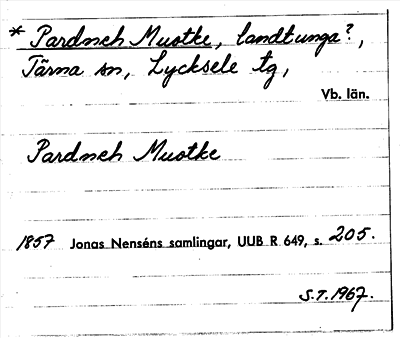 * Pardneh Muotke, landtunga?,
Tärna sn, Lycksele tg,
Vb. län.
Pardneh Muotke
1857 Jonas Nenséns samlingar, UUB R 649, s. 205.
S.T. 1967.